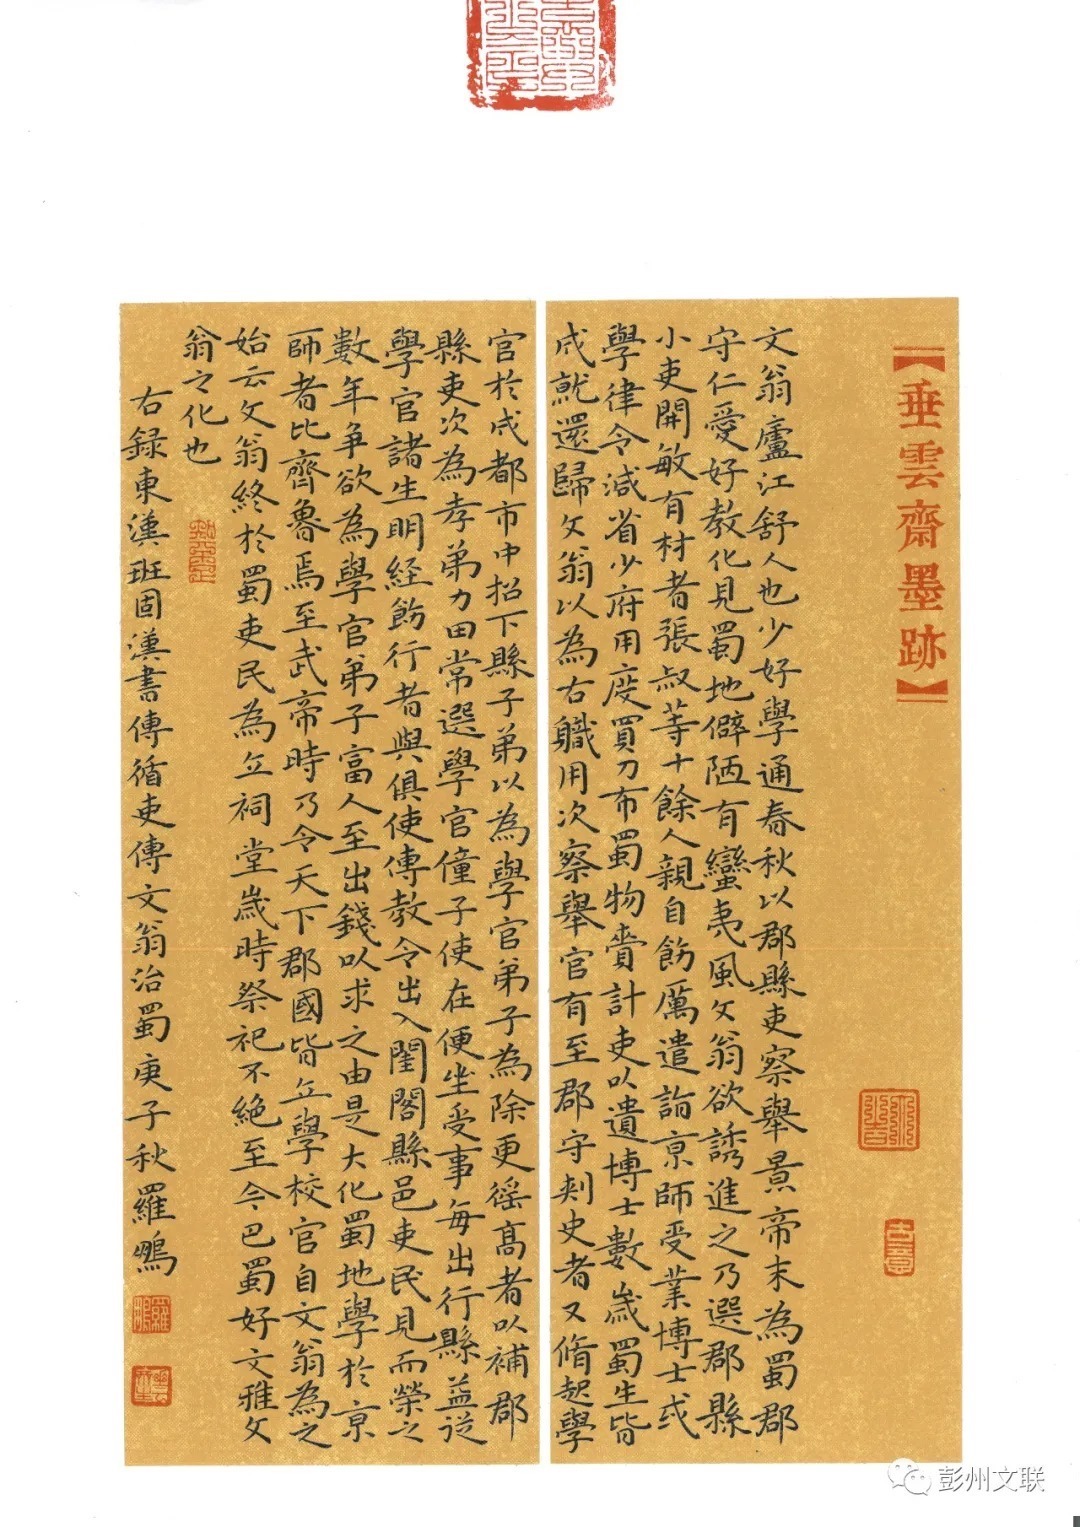 【垂雲齋墨跡】
文翁廬江舒人也少好學通春秋以郡縣吏察舉景帝末為蜀郡
守仁愛好教化見蜀地僻陋有蠻夷風文翁欲誘進之乃選郡縣
小吏開敏有材者張叔等十餘人親自飭厲遣詣京師受業博士或
學律令減省少府用度買刀布蜀物齎計吏以遺博士數歲蜀生皆
成就還歸文翁以為右職用次察舉官有至郡守刺史者又脩起學
官於成都市中招下縣子弟以為學官弟子為除更徭高者以補郡
縣吏次為孝弟力田常選學官僮子使在便坐受事每出行縣益從
學官諸生明經飭行者與俱使傳教令出入閨閣縣邑吏民見而榮之
數年爭欲為學官弟子富人至出錢以求之由是大化蜀地學於京
師者比齊魯焉至武帝時乃令天下郡國皆立學校官自文翁為之
始云文翁終於蜀吏民為立祠堂歲時祭祀不絕至今巴蜀好文雅文
翁之化也
右錄東漢班固漢書傳循吏傳文翁治蜀庚子秋羅鵬
羅鵬
彭州文联